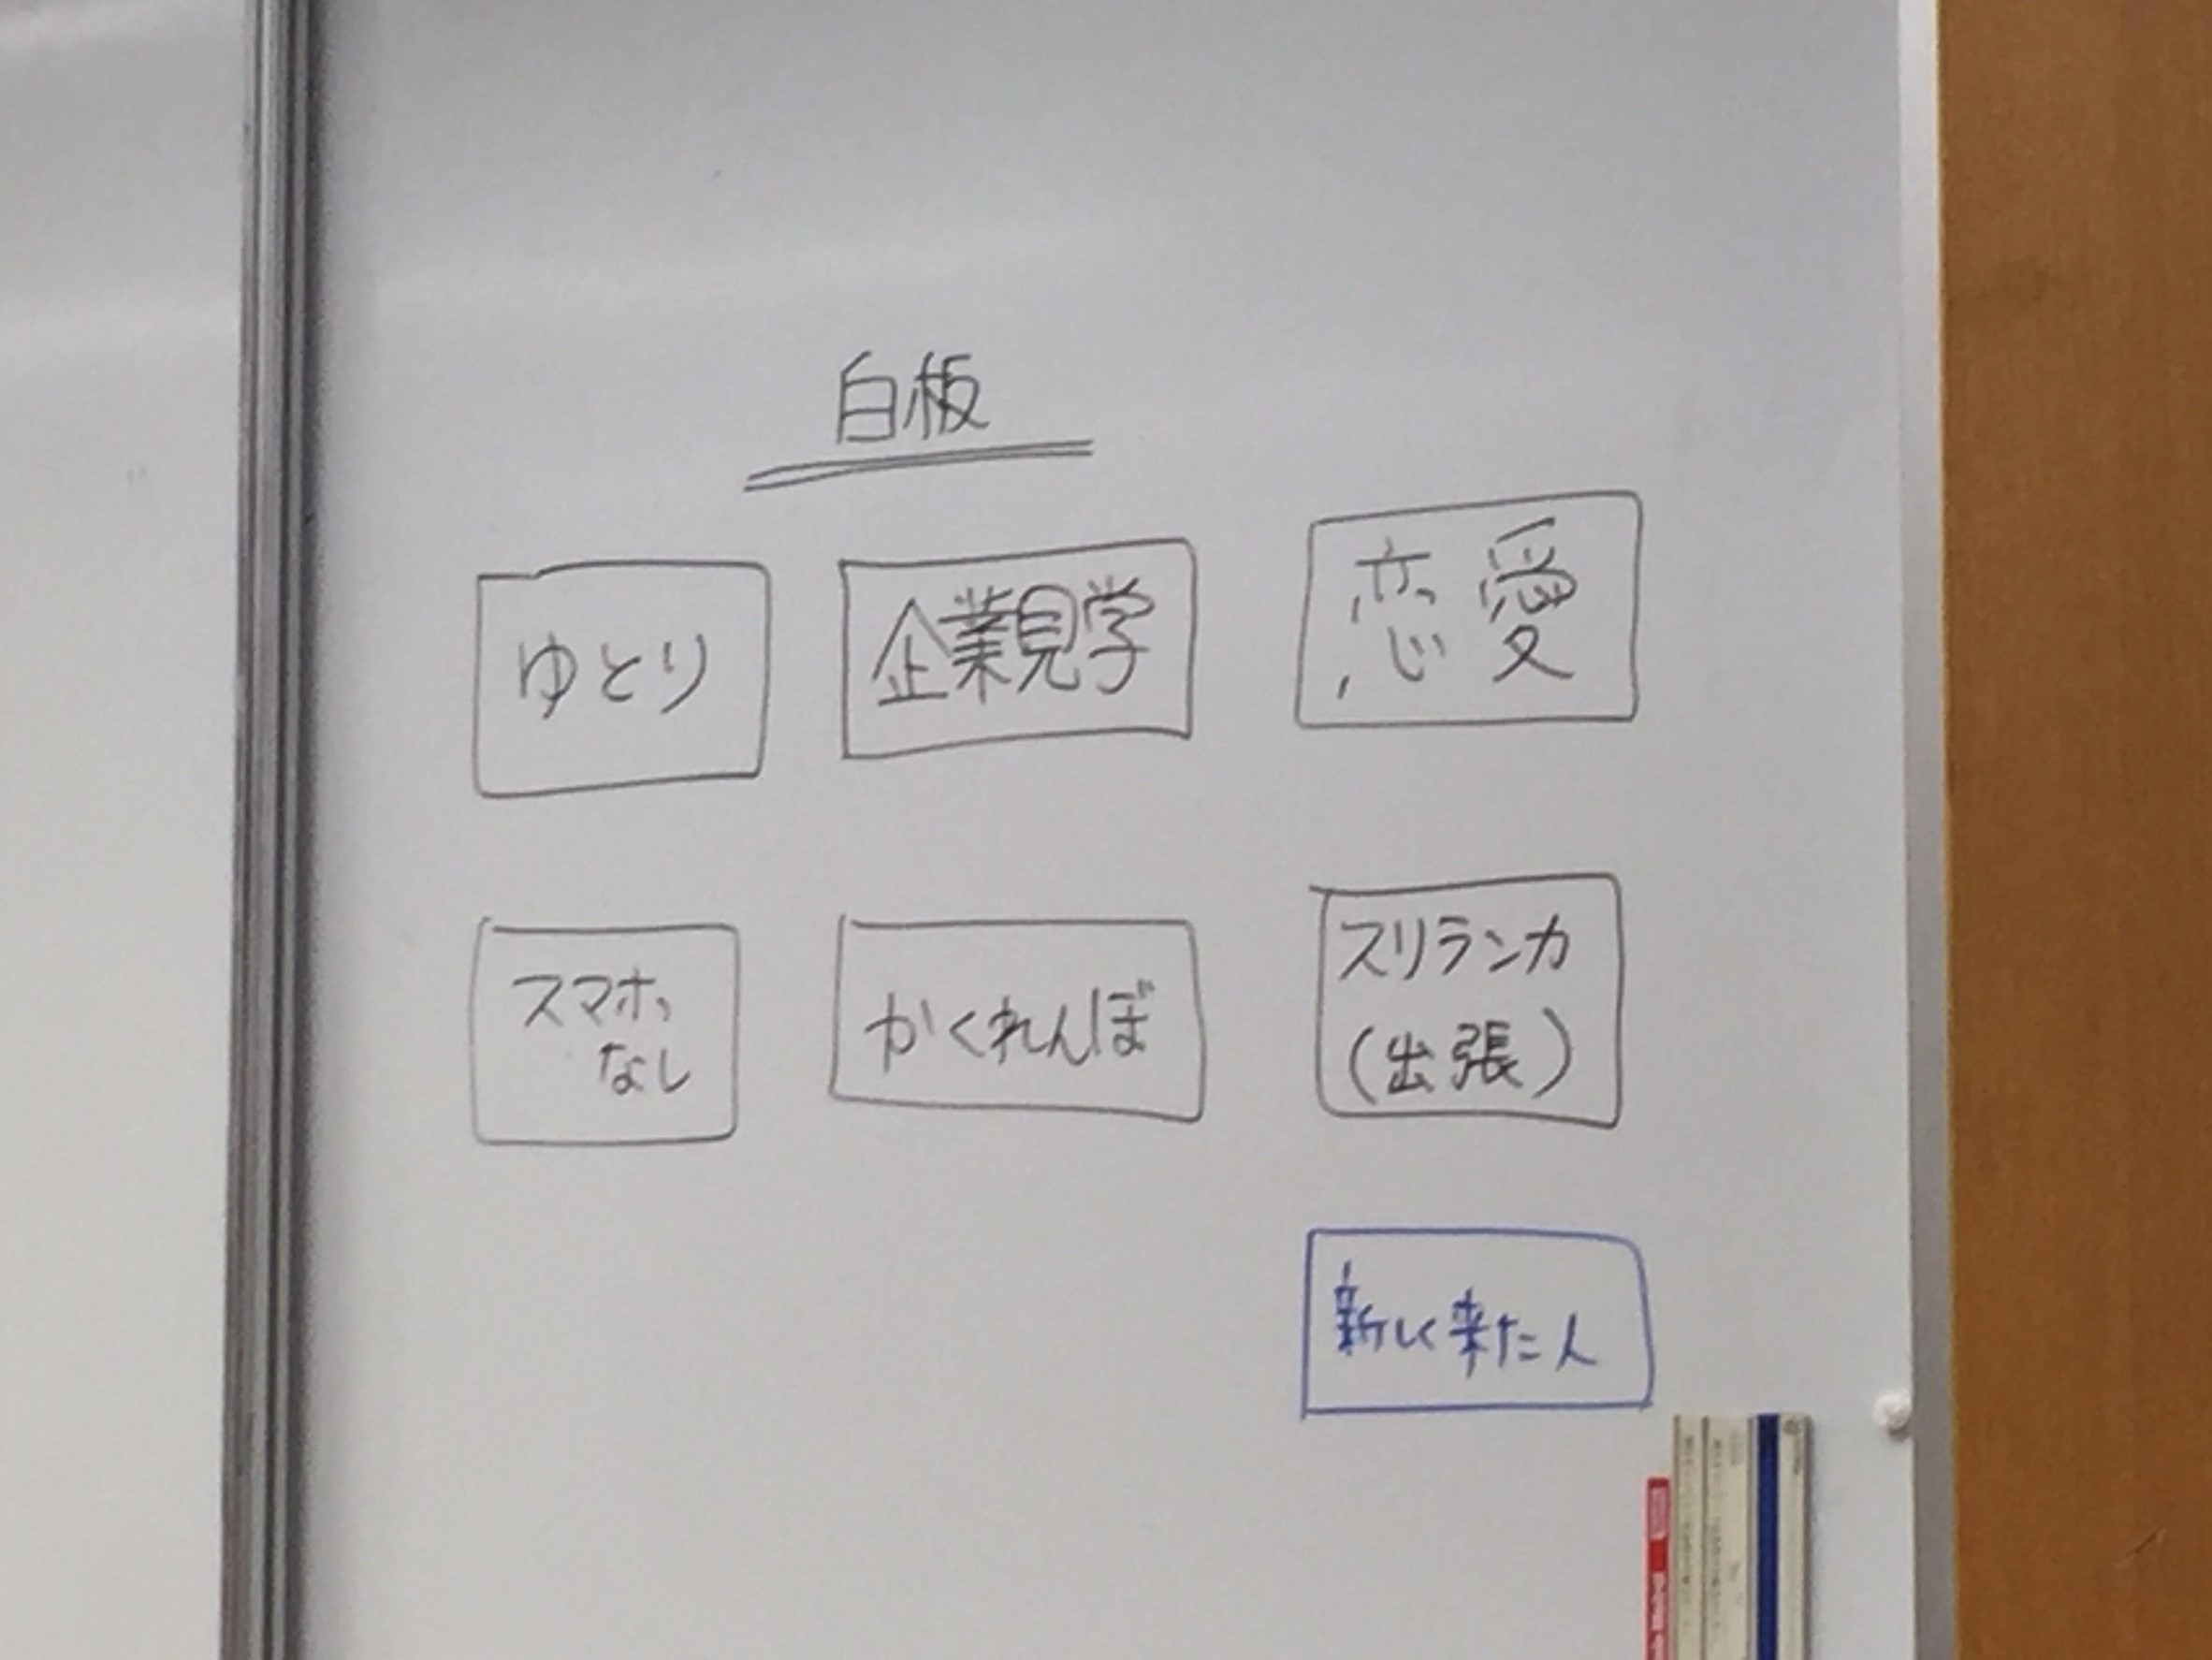 白板
ゆとり
企業見学
恋愛
スマホ
なし
かくれんぼ
スリランカ
(出張)
新しく来た人